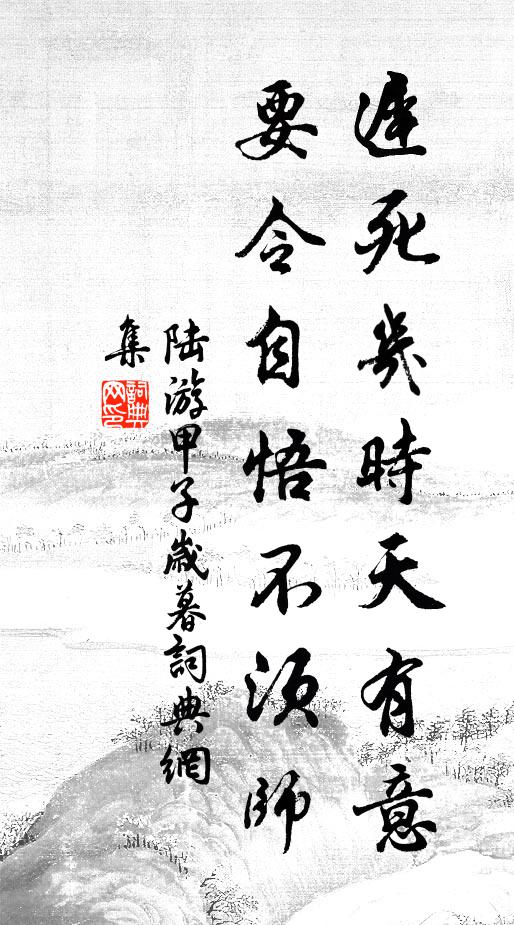 遲死幾時天有意
要令自悟不須師
陸游甲子歲暮詞典網
集
詞典
网印